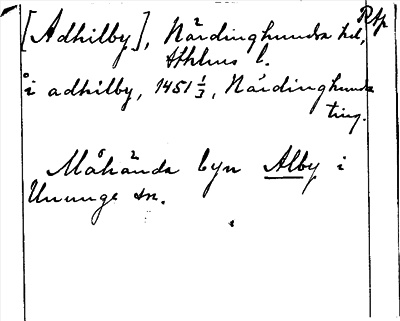 [Adhilby], Närdinghundra hd, Rap
Athlus l.
i adhilby, 1451 1/3, Närdinghundra
ting.
Måhända byn Alby i
Ununge sn.